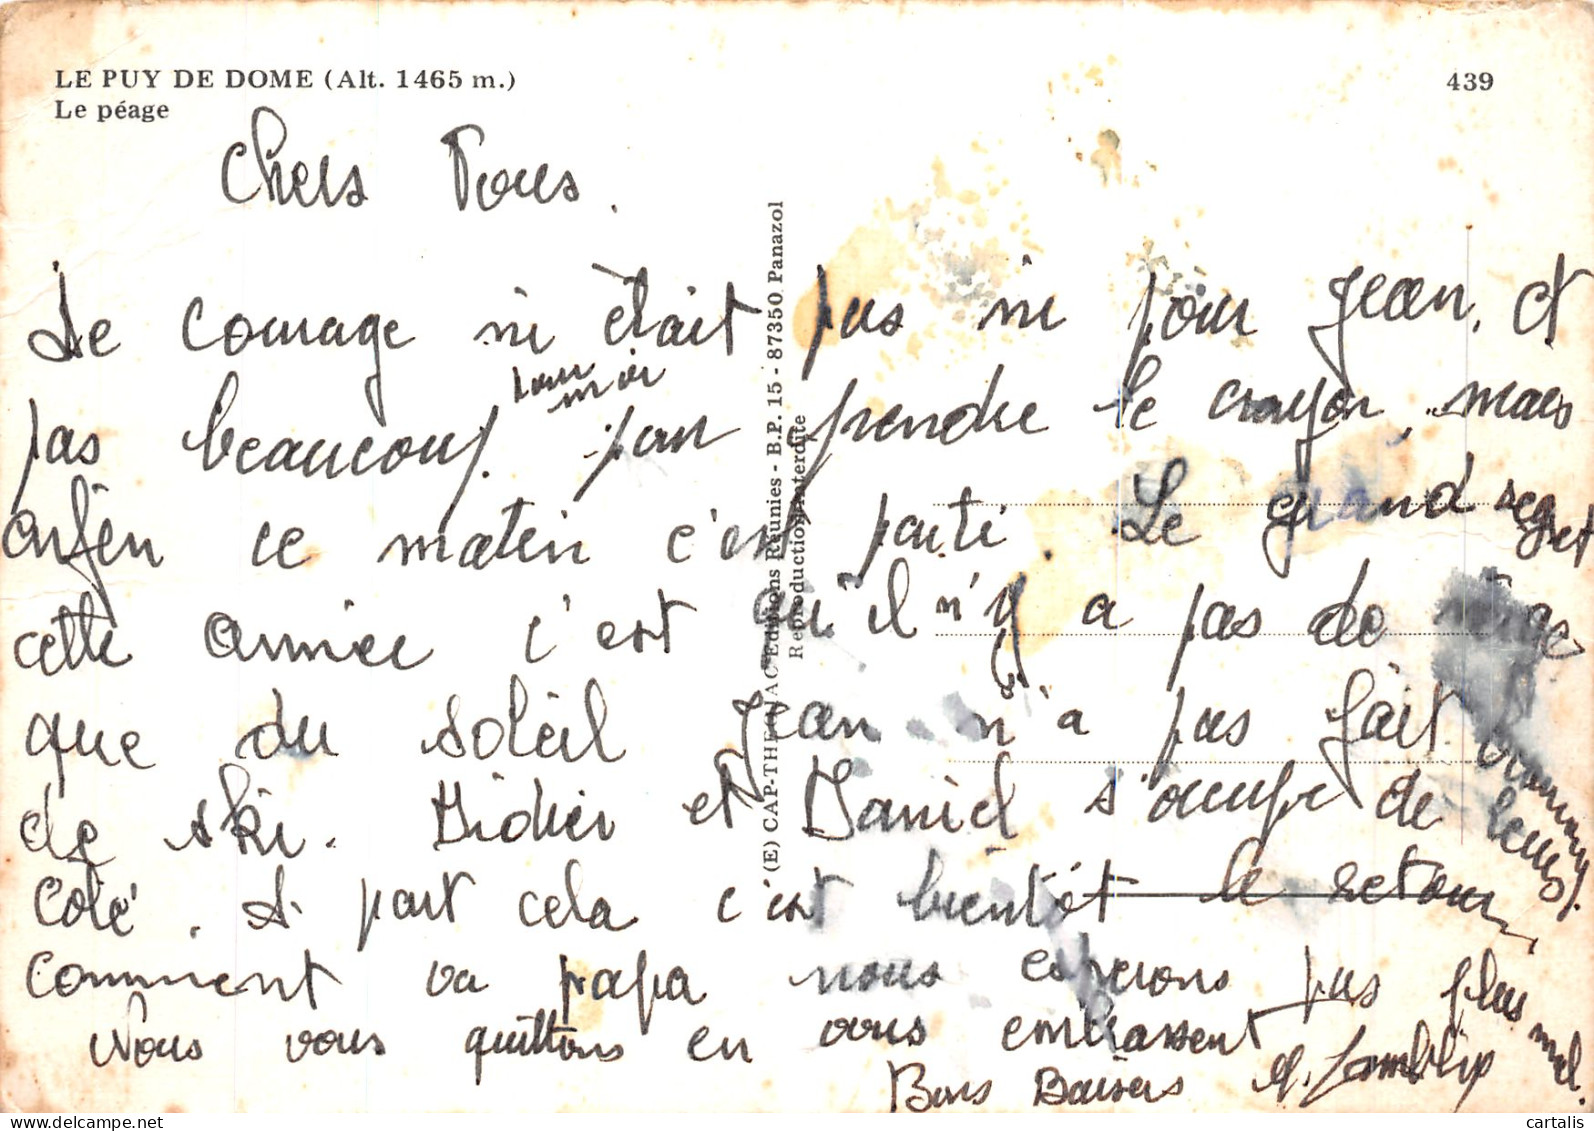 LE PUY DE DOME (Alt. 1465 m.)
Le péage
439
Chers Tous.
Le courage ni était pas ni pour Jean, et
pas beaucoup pour prendre le crayon, mais
pour moi
enfin ce matin c'est parti. Le grand regret
cette année c'est qu'il n'y a pas de neige
que du soleil Jean n'a pas fait beaucoup
de ski. Didier et Daniel s'occupe de leurs
coté. A part cela c'est bientôt le retour,
comment va papa nous esperons pas plus mal.
Nous vous quittons en vous embrassent
Bons Baisers
(E) CAP-THEOJAC Editions Réunies - B.P. 15 - 87350 Panazol
Reproduction interdite
cartalis